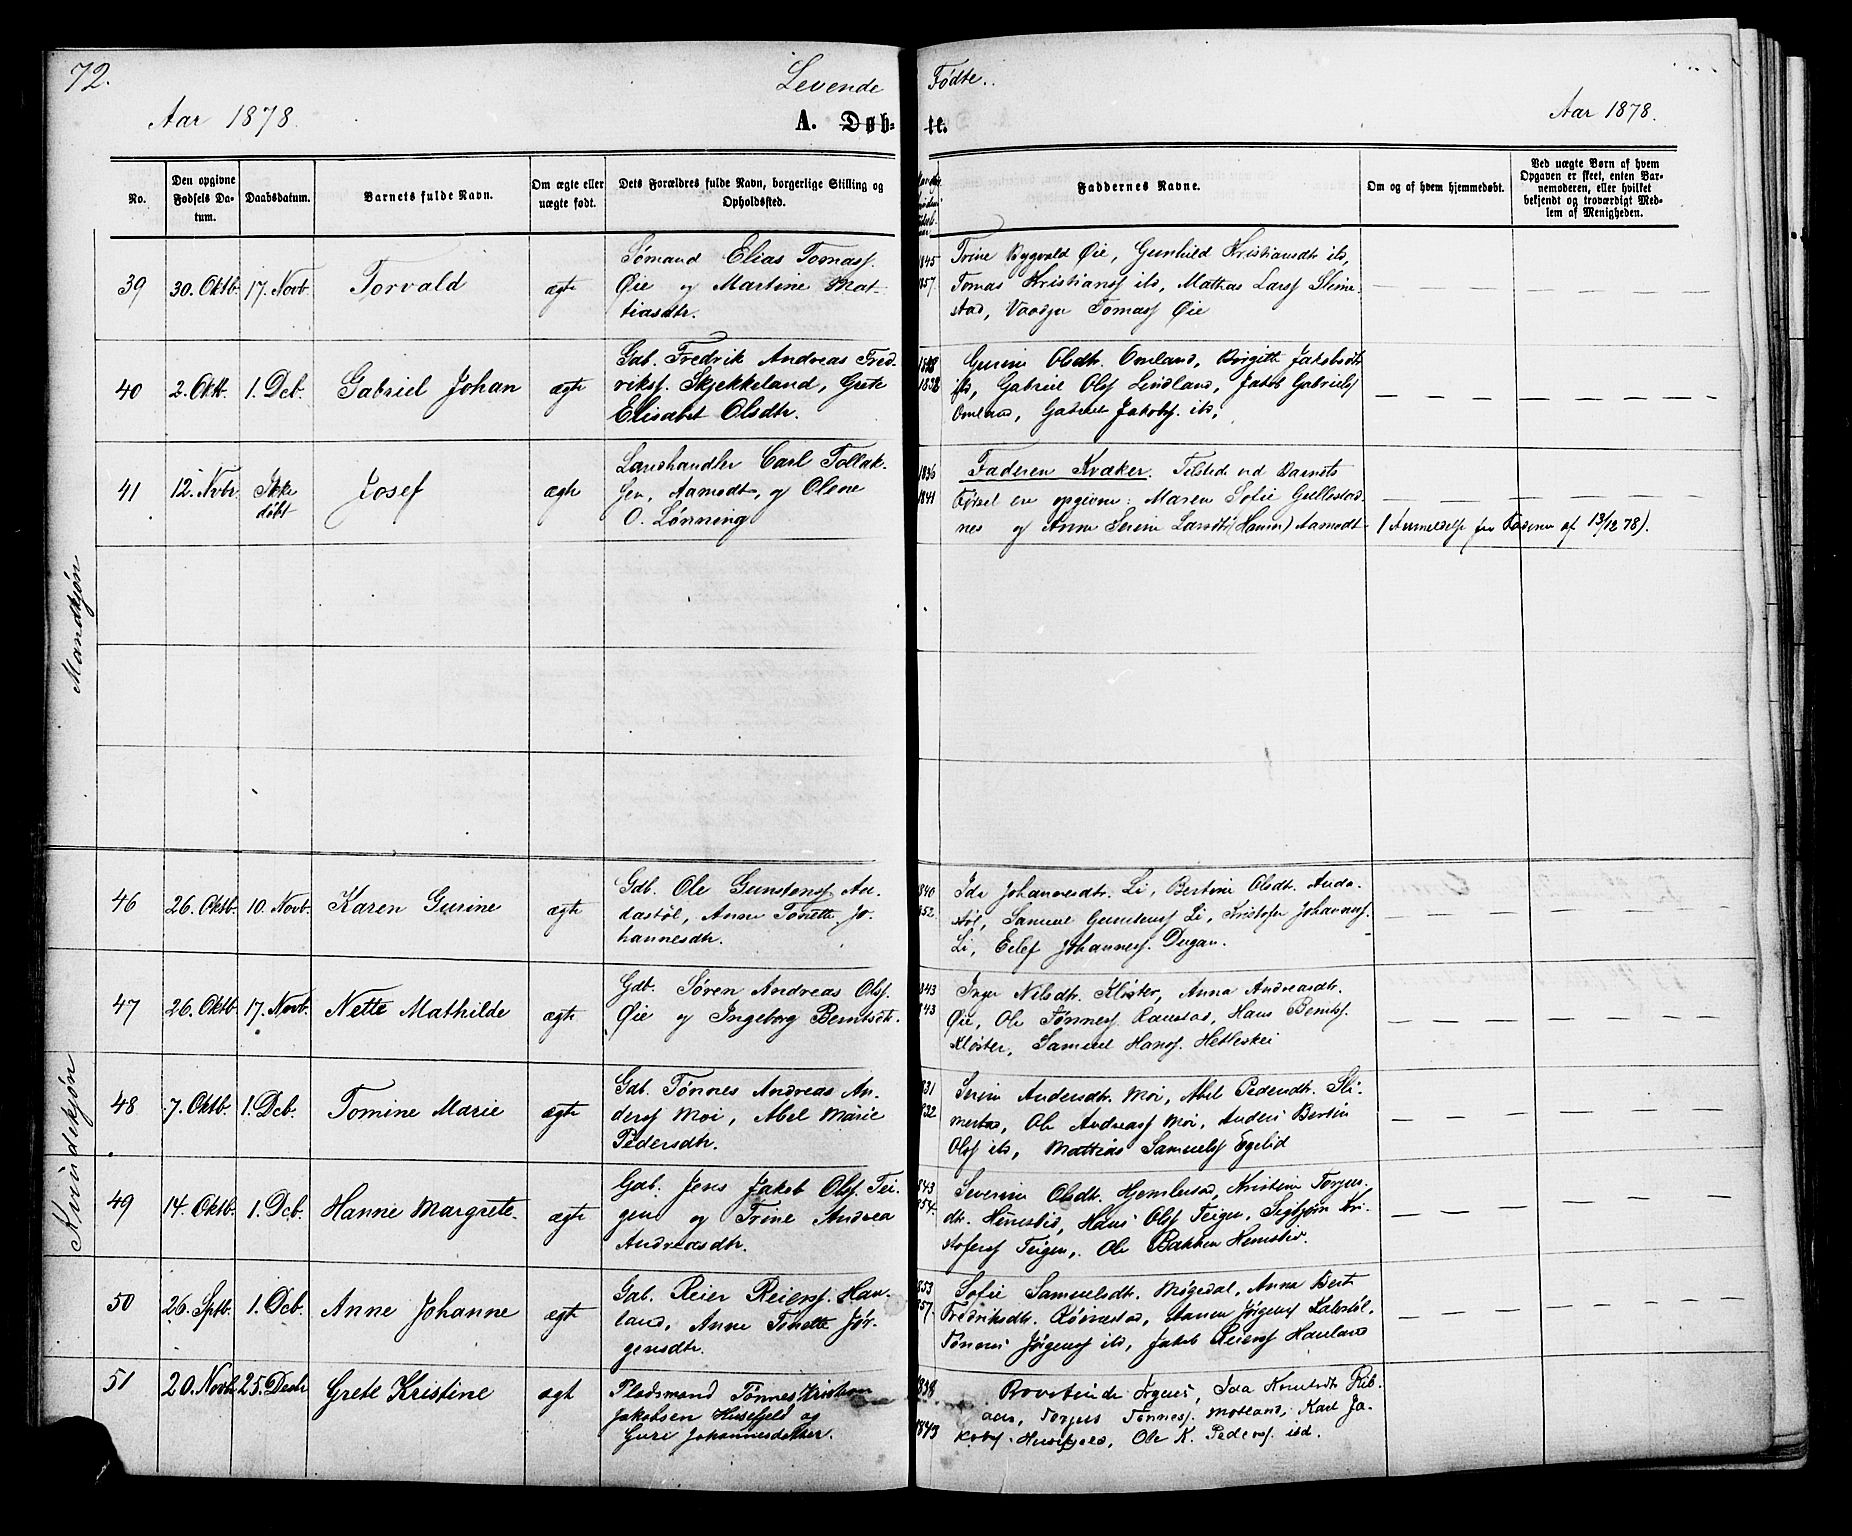 72.
Levende Fødte.
Aar 1878. A. Døbte. Aar 1878.
No. Den opgivne Fødsels Datum. Daabsdatum. Barnets fulde Navn. Om ægte eller uægte født. Dets Forældres fulde Navn, borgerlige Stilling og Opholdssted.
Faddernes Navne. Om og af hvem hjemmedøbt. Ved uægte Børn af hvem Opgaven er skeet, enten Barnemoderen, eller hvilket bekjendt og troværdigt Medlem af Menigheden.
Mandkjøn
39 30. Oktb. 17. Novb Torvald ægte
Sømand Elias Tomass.
Øie og Martine Mat-
tiasdtr.
1845 Trine Bygvald Øie, Gunhild Kristiansdtr ibd,
1857 Tomas Kristianss ibd, Mathias Larss Slime-
stad, Tomass Øie
40 2. Oktb. 1. Dcb. Gabriel Johan ægte
Gab. Fredrik Andreas Fred
riksf. Skjekkeland, Grete
Elisabet Olsdtr.
Gurine Olsdtr. Omland, Birgitte Jakobsdtr
1838 ibd, Gabriel Olsf Lindland, Jakob Gabrielsf
Omland, Gabriel Jakobsf. ibd,
41 12. Nvbr. Ikke døbt Josef ægte
Landhandler Carl Tollak-
sen, Aamodt, og Olene
O. Lønning
1836 Faderen Kvæker. Tilstede ved Barnets
1841 Fødsel ere opgivne: Maren Sofie Gullestad-
nes og Anne Serine Larsdtr (Hansen) Aamodt (Anmeldelse fra Faderen af 13/12 78).
Kvindekjøn
46 26. Oktb. 10. Novb. Karen Gurine ægte
Gdb. Ole Gunstensf Au-
dastøl, Anne Tonette Jo-
hannesdtr.
1840 Ida Johannesdtr. Li, Bertine Olsdtr. Auda-
1852. støl, Samuel Gunstensf Li, Kristofer Johannesf.
Li, Eilef Johannesf. Dugan.
47 26. Oktb 17. Novb. Nette Mathilde ægte
Gdb. Søren Andreas Olsf.
Øie og Ingeborg Berntsdtr.
1843 Inger Nilsdtr. Kloster, Anna Andreasdtr.
1843 Øie, Ole Tønnesf. Ramstad, Hans Berntsf.
Kloster, Samuel Hansf. Hetleskei
48 7. Oktb. 1. Dcb. Tomine Marie ægte
Gdb. Tønnes Andreas An-
dersf Moi, Abel Marie
Pedersdtr.
1831 Serine Andersdtr. Moi, Abel Pedersdtr. Sli-
1832 mestad, Ole Andreasf Moi, Anders Bertin
Olsf ibd, Mattias Samuelsf Egelid
49 14. Oktb. 1. Dcb. Hanne Margrete. ægte
Gab. Jens Jakob Olsf. Tei-
gen og Trine Andrea
Andreasdtr.
1843 Severine Olsdtr. Hemlestad, Kristine Torjus-
1854. dtr. Hemestad, Hans Olsf Teigen, Sigbjørn Kri-
stofersf Teigen, Ole Bakken Hemestad.
50 26. Sptb. 1. Dcb. Anne Johanne ægte
Gab. Reier Reiersf. Hau-
land, Anne Tonette Jør-
gensdtr.
1853 Sofie Samuelsdtr. Møgedal, Anna Berte
1857. Fredriksdtr. Rørnestad, Jørgensf Kalestøl,
Tønnes Jørgensf ibd, Jakob Reiersf Hauland
51 20. Novb. 25. Decbr Grete Kristine ægt
Pladsmand Tønnes Kristian
Jakobsen Husefjeld og
Guri Johannesdatter.
1838 Rovstinde Ida Knudsdtr Rib-
aas, Torjus Tønnesf. Motland, Karl Ja-
1843 kobsf. Husefjeld, Ole K. Pedersf. ibd.